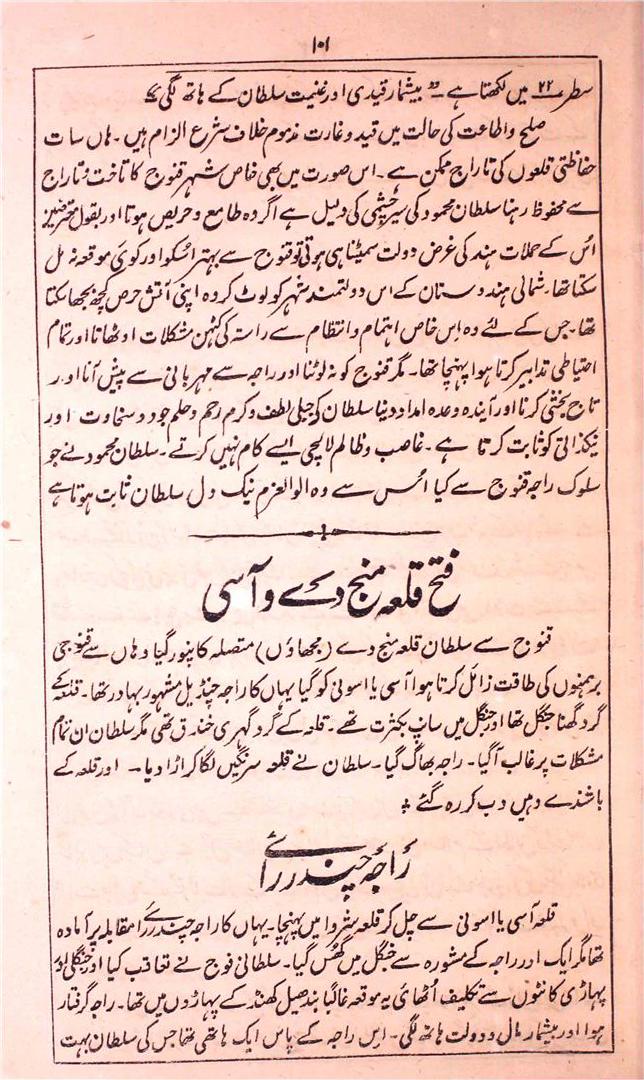 ۱۰۱
سطر ۲۲ میں لکھتا ہے "بیشمار قیدی اور غنیمت سلطان کے ہاتھ لگی"
صلح و اطاعت کی حالت میں قید و غارت مذموم خلاف شرع الزام ہیں۔ ہاں سات
حفاظتی قلعوں کی تاراج ممکن ہے۔ اس صورت میں بھی خاص شہر قنوج کا تاخت و تاراج
سے محفوظ رہنا سلطان محمود کی سیر چشمی کی دلیل ہے اگر وہ طامع و حریص ہوتا اور بقول معترضین
اُس کے حملات ہند کی غرض دولت سمیٹنا ہی ہوتی تو قنوج سے بہتر اُسکو اور کوئی موقعہ نہ مل
سکتا تھا۔ شمالی ہندوستان کے اس دولتمند شہر کو لوٹ کر وہ اپنی آتش حرص کچھ بجھا سکتا
تھا۔ جس کے لئے وہ اِس خاص اہتمام و انتظام سے راستہ کی کٹھن مشکلات اوٹھاتا اور تمام
احتیاطی تدابیر کرتا ہوا پہنچا تھا۔ مگر قنوج کو نہ لوٹنا اور راجہ سے مہربانی سے پیش آنا اور
تاج بخشی کرنا اور آیندہ وعدہ امداد دینا سلطان کی جبلی لطف و کرم رحم و حلم جود و سخاوت اور
نیکذاتی کو ثابت کرتا ہے۔ غاصب و ظالم لالچی ایسے کام نہیں کرتے۔ سلطان محمود نے جو
سلوک راجہ قنوج سے کیا اُس سے وہ الوالعزم نیک دل سلطان ثابت ہوتا ہے
فتح قلعہ منج دے و آسی
قنوج سے سلطان قلعہ منج دے (مجھاؤں) متصلہ کانپور گیا وہاں سے قنوجی
برہمنوں کی طاقت زائل کرتا ہوا آسی یا اسونی کو گیا یہاں کا راجہ چنڈیل مشہور بہادر تھا۔ قلعہ کے
گرد گھنا جنگل تھا اور جنگل میں سانپ بکثرت تھے۔ قلعہ کے گرد گہری خندق تھی مگر سلطان ان تمام
مشکلات پر غالب آگیا۔ راجہ بھاگ گیا۔ سلطان نے قلعہ سرنگیں لگا کر اڑا دیا۔ اور قلعہ کے
باشندے وہیں دب کر رہ گئے
راجہ چندر رائے
قلعہ آسی یا اسونی سے چل کر قلعہ شروا میں پہنچا۔ یہاں کا راجہ چندر رائے مقابلہ پر آمادہ
تھا مگر ایک اور راجہ کے مشورہ سے جنگل میں گھُس گیا۔ سلطانی فوج نے تعاقب کیا اور جنگلی اور
پہاڑی کانٹوں سے تکلیف اُٹھائی یہ موقعہ غالباً بندھیل کھنڈ کے پہاڑوں میں تھا۔ راجہ گرفتار
ہوا اور بیشمار مال و دولت ہاتھ لگی۔ اس راجہ کے پاس ایک ہاتھی تھا جس کی سلطان بہت